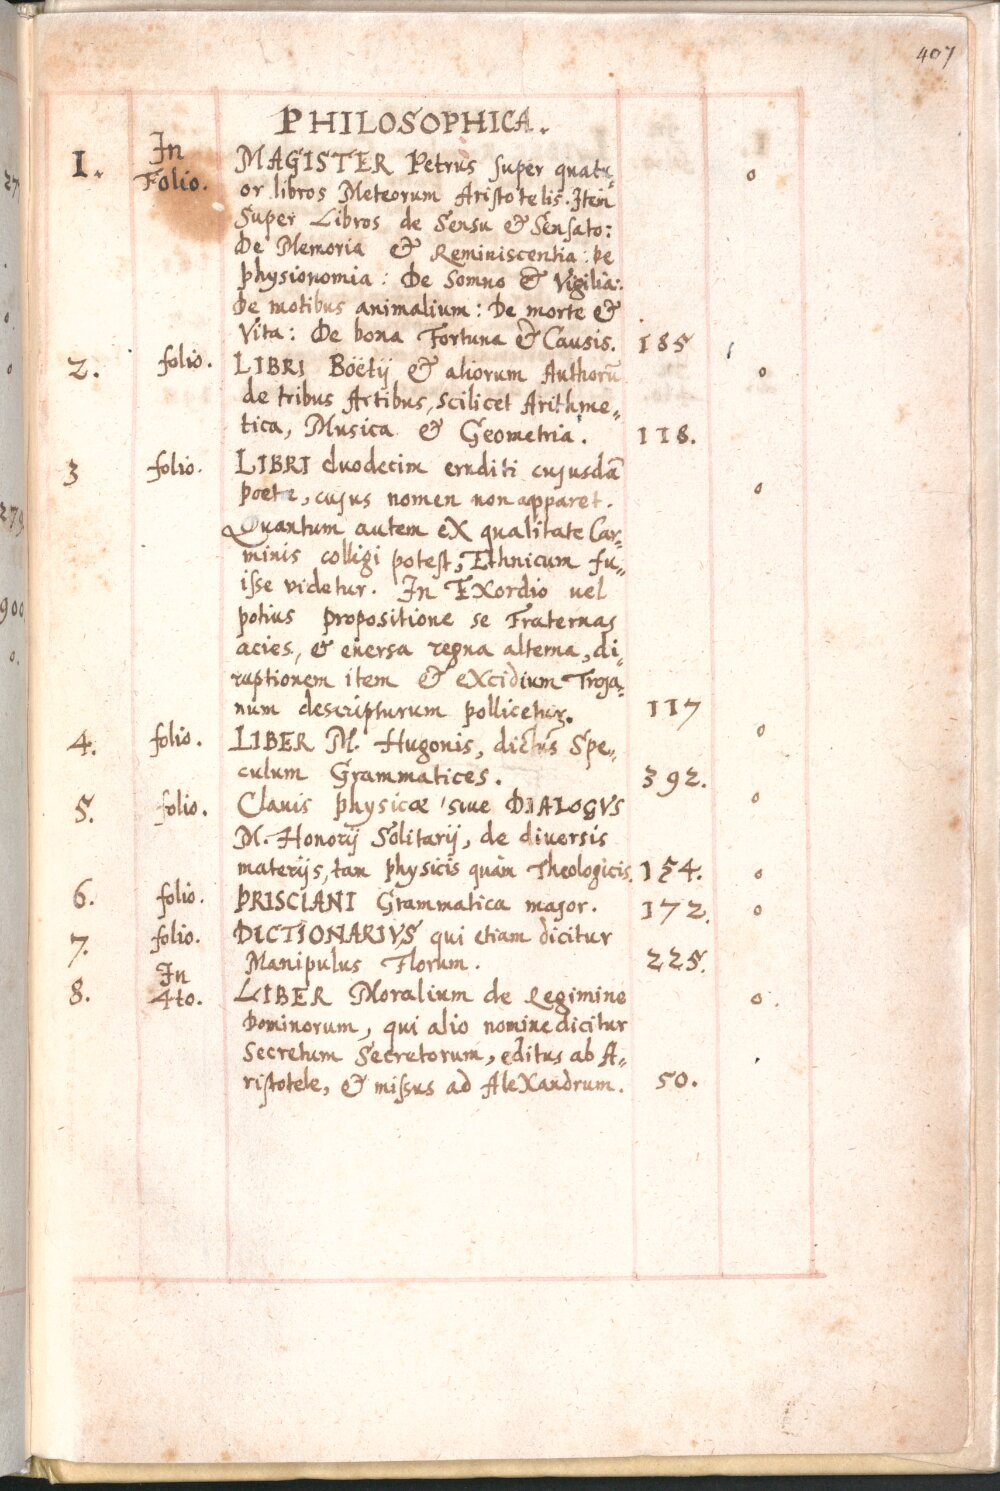 407
PHILOSOPHICA.
1. In Folio. MAGISTER Petrus super quatu„
or libros Meteorum Aristotelis. Item
Super Libros de Sensu & Sensato:
De Memoria & Reminiscentia: De
physionomia: De Somno & Vigilia:
De motibus animalium: De morte &
Vita: De bona Fortuna & Causis. 185 0
2. folio. LIBRI Boëtij & aliorum Authorū
de tribus Artibus, scilicet Arithme„
tica, Musica & Geometria. 118. 0
3 folio. LIBRI duodecim eruditi cujusdā
poetæ, cujus nomen non apparet.
Quantum autem ex qualitate Car„
minis colligi potest, Ethnicum fu„
isse videtur. In Exordio vel
potius propositione se Fraternas
acies, & euersa regna alterna, di„
ruptionem item & excidium Troja„
num descripturum pollicetur. 117 0
4. folio. LIBER M. Hugonis, dictus Spe„
culum Grammatices. 392. 0
5. folio. Clauis physicæ siue DIALOGVS
M. Honorij Solitarij, de diuersis
materijs, tam physicis quàm Theologicis. 154. 0
6. folio. PRISCIANI Grammatica major. 172. 0
7. folio. DICTIONARIVS qui etiam dicitur
Manipulus Florum. 225. 0
8. In 4to. LIBER Moralium de Regimine
Dominorum, qui alio nomine dicitur
Secretum Secretorum, editus ab A„
ristotele, & missus ad Alexandrum. 50. 0
27
279
900